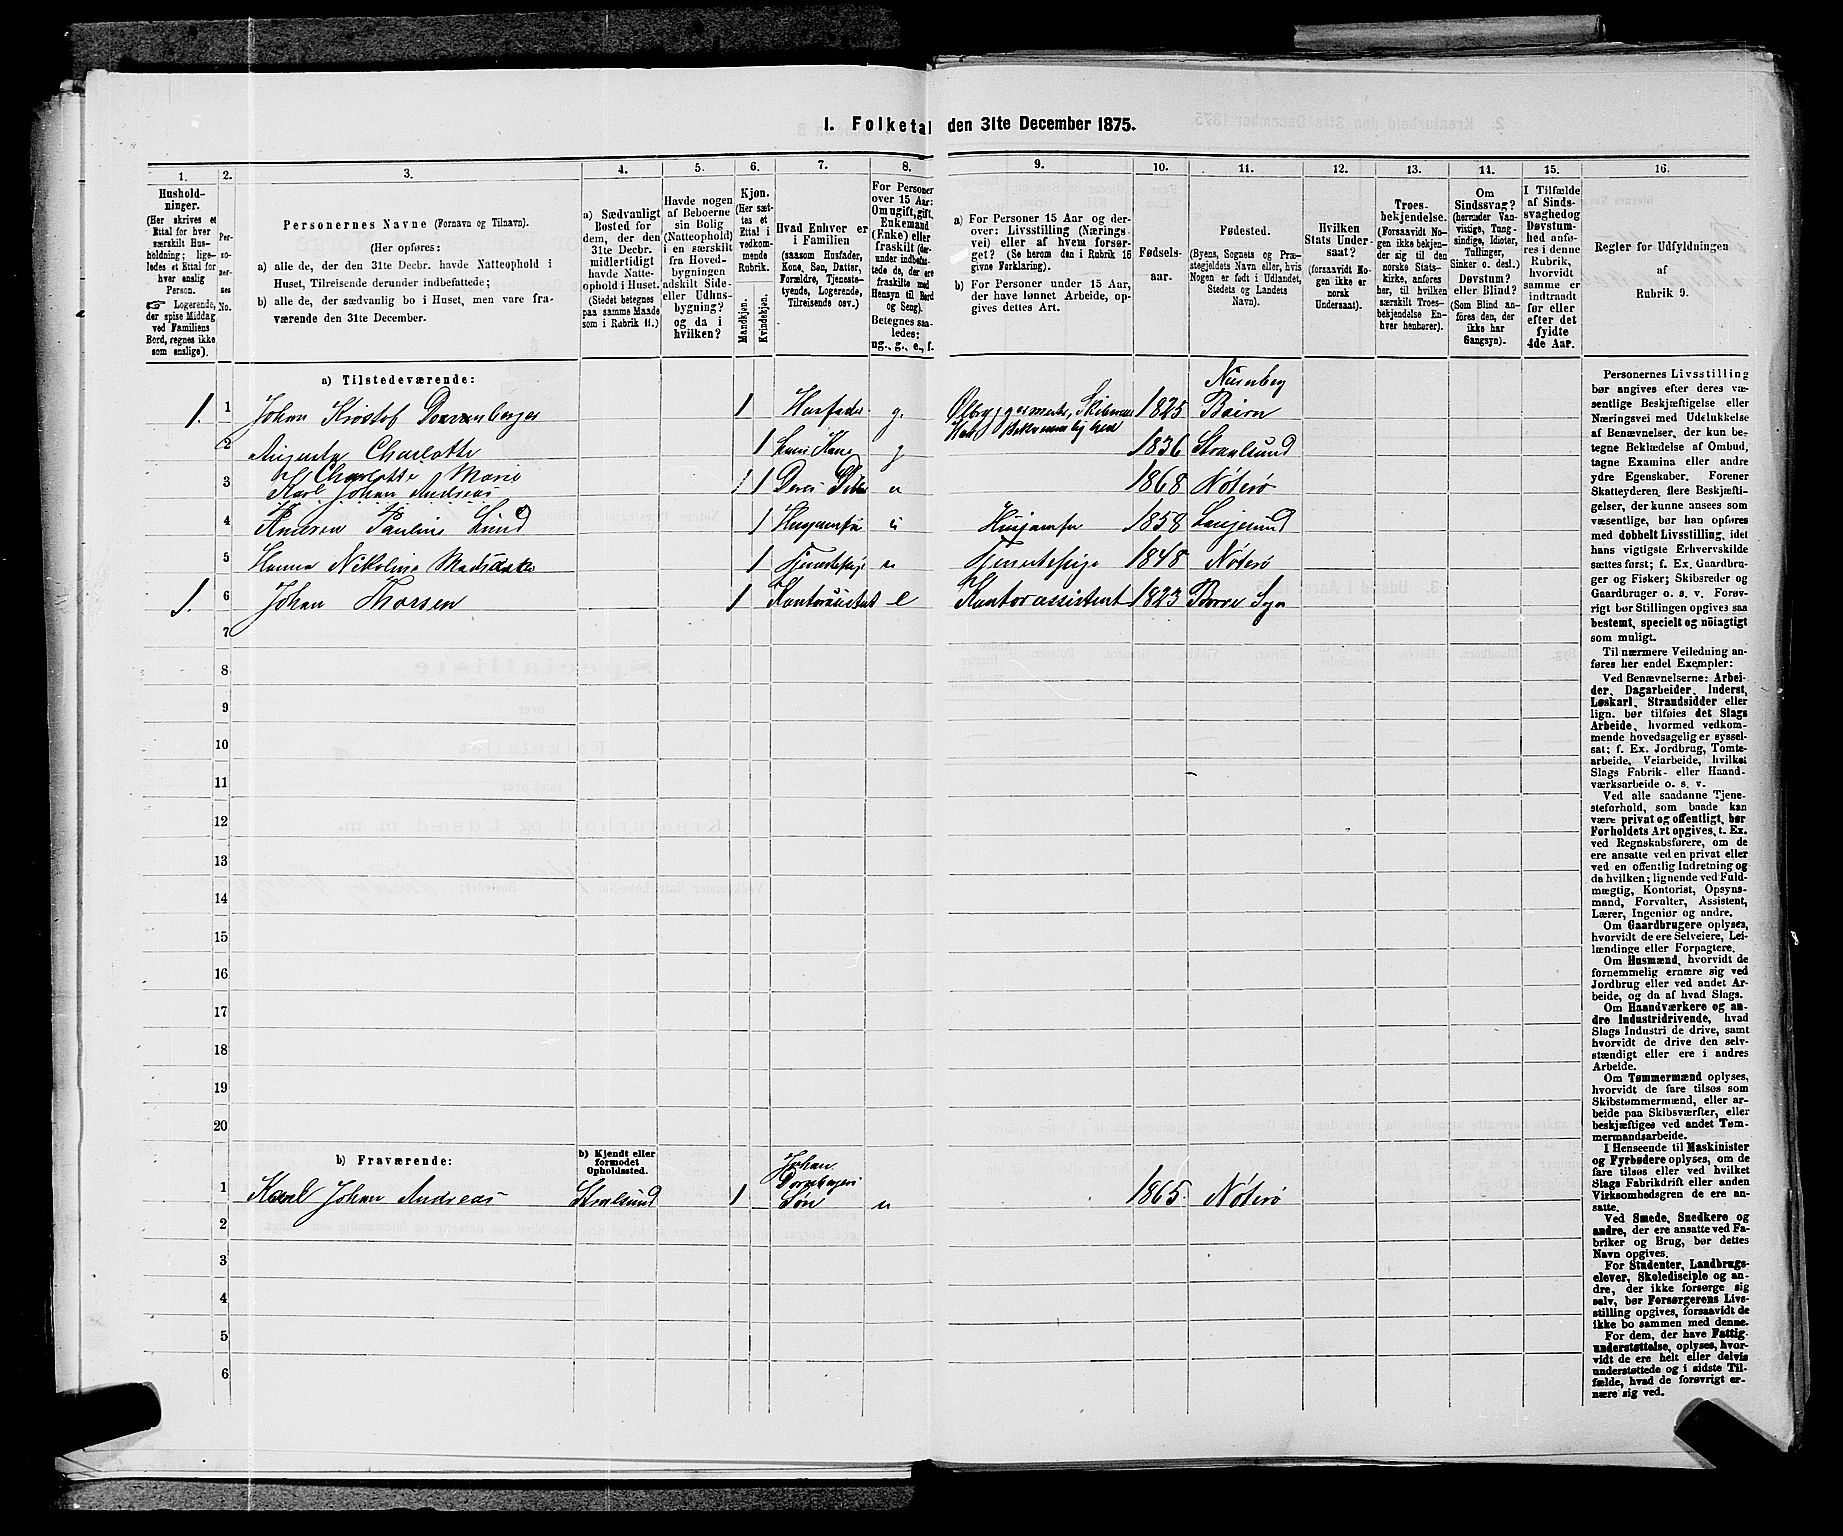 1. Folketal den 31te December 1875.
1. 2. 3. 4. 5. 6. 7. 8. 9. 10. 11. 12. 13. 14. 15. 16.
Hushold-
ninger.
(Her skrives et
Ettal for hver
særskilt Hus-
holdning; lige-
ledes et Ettal for
hver enslig
Person.
☞ Logerende,
der spise Middag
ved Familiens
Bord, regnes ikke
som enslige).
Per-
so-
ner-
nes
No.
Personernes Navne (Fornavn og Tilnavn).
(Her opføres:
a) alle de, der den 31te Decbr. havde Natteophold i
Huset, Tilreisende derunder indbefattede;
b) alle de, der sædvanlig bo i Huset, men vare fra-
værende den 31te December.
a) Sædvanligt
Bosted for
dem, der den
31te Decbr.
midlertidigt
havde Natte-
ophold i Huset.
(Stedet betegnes
paa samme Maade
som i Rubrik 11.)
Havde nogen
af Beboerne
sin Bolig
(Natteophold)
i en særskilt
fra Hoved-
bygningen
adskilt Side-
eller Udhus-
bygning?
og da i
hvilken?
Kjøn.
(Her sæt-
tes et
Ettal i
vedkom-
mende
Rubrik.
Mandkjøn.
Kvindekjøn.
Hvad Enhver er
i Familien
(saasom Husfader,
Kone, Søn, Datter,
Forældre, Tjeneste-
tyende, Logerende,
Tilreisende osv.)
For Personer
over 15 Aar:
Om ugift, gift,
Enkemand
(Enke) eller
fraskilt (der-
under indbefat-
tede de, der ere
fraskilte med
Hensyn til Bord
og Seng).
Betegnes saa-
ledes:
ug., g., e., f.
a) For Personer 15 Aar og der-
over: Livsstilling (Nærings-
vei) eller af hvem forsør-
get? (Se herom den i Rubrik 16
givne Forklaring).
b) For Personer under 15 Aar,
der have lønnet Arbeide, op-
gives dettes Art.
Fødsels-
aar.
Fødested.
(Byens, Sognets og Præ-
stegjeldets Navn eller, hvis
Nogen er født i Udlandet,
Stedets og Landets
Navn).
Hvilken
Stats Under-
saat?
(forsaavidt No-
gen ikke er
norsk
Undersaat).
Troes-
bekjendelse.
(Forsaavidt No-
gen ikke bekjen-
der sig til den
norske Stats-
kirke, anføres
her, til hvilken
særskilt Troes-
bekjendelse En-
hver henhører).
Om
Sindssvag?
(herunder Van-
vittige, Tung-
sindige, Idioter,
Tullinger,
Sinker o. desl.)
Døvstum?
eller Blind?
(Som Blind an-
føres den, der
ikke har
Gangsyn).
I Tilfælde
af Sinds-
svaghed og
Døvstum-
hed anfø-
res i denne
Rubrik,
hvorvidt
samme er
indtraadt
før eller
efter det
fyldte
4de Aar.
Regler for Udfyldningen
af
Rubrik 9.
a) Tilstedeværende:
1. 1 Johan Kristof 1 Husfader g. 1825 Nürnberg Baiern
2 Augusta Charlotte 1 hans Kone g 1836 Stralsund
3 Charlotte Marie 1 1 Deres u 1868 Nøterø
Karl Johan Andreas
4 Pauline Lund 1 u 1858 Langesund
5 Hanna Nikoline 1 Tjenestepige u Tjenestepige 1848 Nøterø
1. 6 Johan Thorsen 1 e Kontorassistent 1823 Borre Sogn
7
8
9
10
11
12
13
14
15
16
17
18
19
20
b) Fraværende:
b) Kjendt eller
formodet
Opholdssted.
1 Karl Johan Andreas Stralsund 1 Johan Søn u 1865. Nøterø
2
3
4
5
6
Personernes Livsstilling
bør angives efter deres væ-
sentlige Beskjæftigelse eller
Næringsvei med Udelukkelse
af Benævnelser, der kun be-
tegne Beklædelse af Ombud,
tagne Examina eller andre
ydre Egenskaber. Forener
Skatteyderen flere Beskjæfti-
gelser, der kunne ansees som
væsentlige, bør han opføres
med dobbelt Livsstilling, idet
hans vigtigste Erhvervskilde
sættes først; f. Ex. Gaardbru-
ger og Fisker; Skibsreder og
Gaardbruger o. s. v. Forøv-
rigt bør Stillingen opgives saa
bestemt, specielt og nöiagtigt
som muligt.
Til nærmere Veiledning an-
føres her endel Exempler:
Ved Benævnelserne: Arbei-
der, Dagarbeider, Inderst,
Løskarl, Strandsidder eller
lign. bør tilføies det Slags
Arbeide, hvormed vedkom-
mende hovedsagelig er syssel-
sat; f. Ex. Jordbrug, Tomte-
arbeide, Veiarbeide, hvilket
Slags Fabrik- eller Haand-
værksarbeide o. s. v.
Ved alle saadanne Tjene-
steforhold, som baade kan
være privat og offentligt, bør
Forholdets Art opgives, t. Ex.
ved Regnskabsførere, om de
ere ansatte ved en privat eller
ved en offentlig Indretning og
da hvilken; lignende ved Fuld-
mægtig, Kontorist, Opsyns-
mand, Forvalter, Assistent,
Lærer, Ingeniør og andre.
Om Gaardbrugere oplyses,
hvorvidt de ere Selveiere, Lei-
lændinge eller Forpagtere.
Om Husmænd, hvorvidt de
fornemmelig ernære sig ved
Jordbrug eller ved andet Ar-
beide, og da af hvad Slags.
Om Haandværkere og an-
dre Industridrivende, hvad
Slags Industri de drive, samt
hvorvidt de drive den selv-
stændigt eller ere i andres
Arbeide.
Om Tømmermænd oplyses,
hvorvidt de fare tilsøs som
Skibstømmermænd, eller ar-
beide paa Skibsværfter, eller
beskjæftiges ved andet Tøm-
mermandsarbeide.
I Henseende til Maskinister
og Fyrbødere oplyses, om de
fare tilsøs eller ved hvilket
Slags Fabrikdrift eller anden
Virksomhedsgren de ere an-
satte.
Ved Smede, Snedkere og
andre, der ere ansatte ved Fa-
briker og Brug, bør dettes
Navn opgives.
For Studenter, Landbrugs-
elever, Skoledisciple og an-
dre, der ikke forsørge sig
selv, bør Forsørgerens Livs-
stilling opgives, forsaavidt de
ikke bo sammen med denne.
For dem, der have Fattig-
understøttelse, oplyses, hvor-
vidt de ere helt eller delvis
understøttede og i sidste Til-
fælde, hvad de forøvrigt er-
nære sig ved.